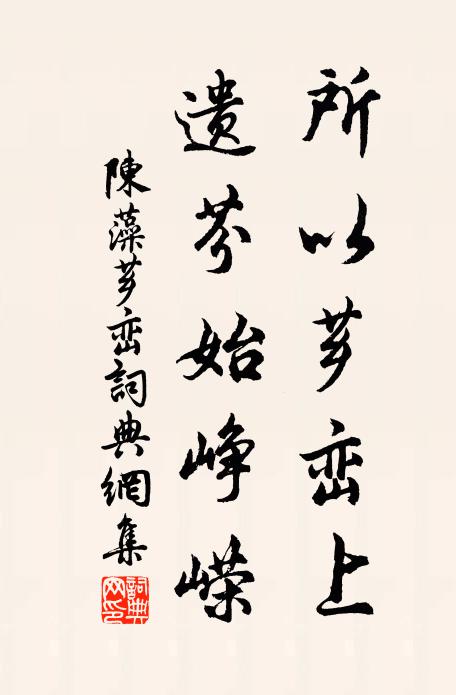 所以芗峦上
遗芬始峥嵘
陳藻芗峦詞典網集
詞典网印